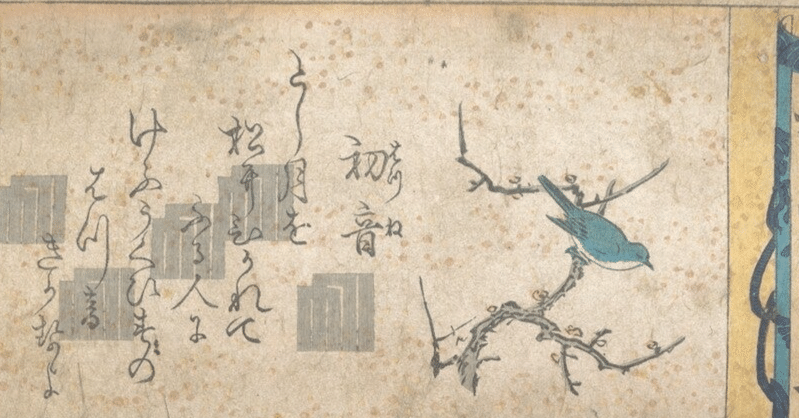 初音
はつね
とし月を
松にひかれて
ふる人に
けふうくひすの
はつ音
きかせよ